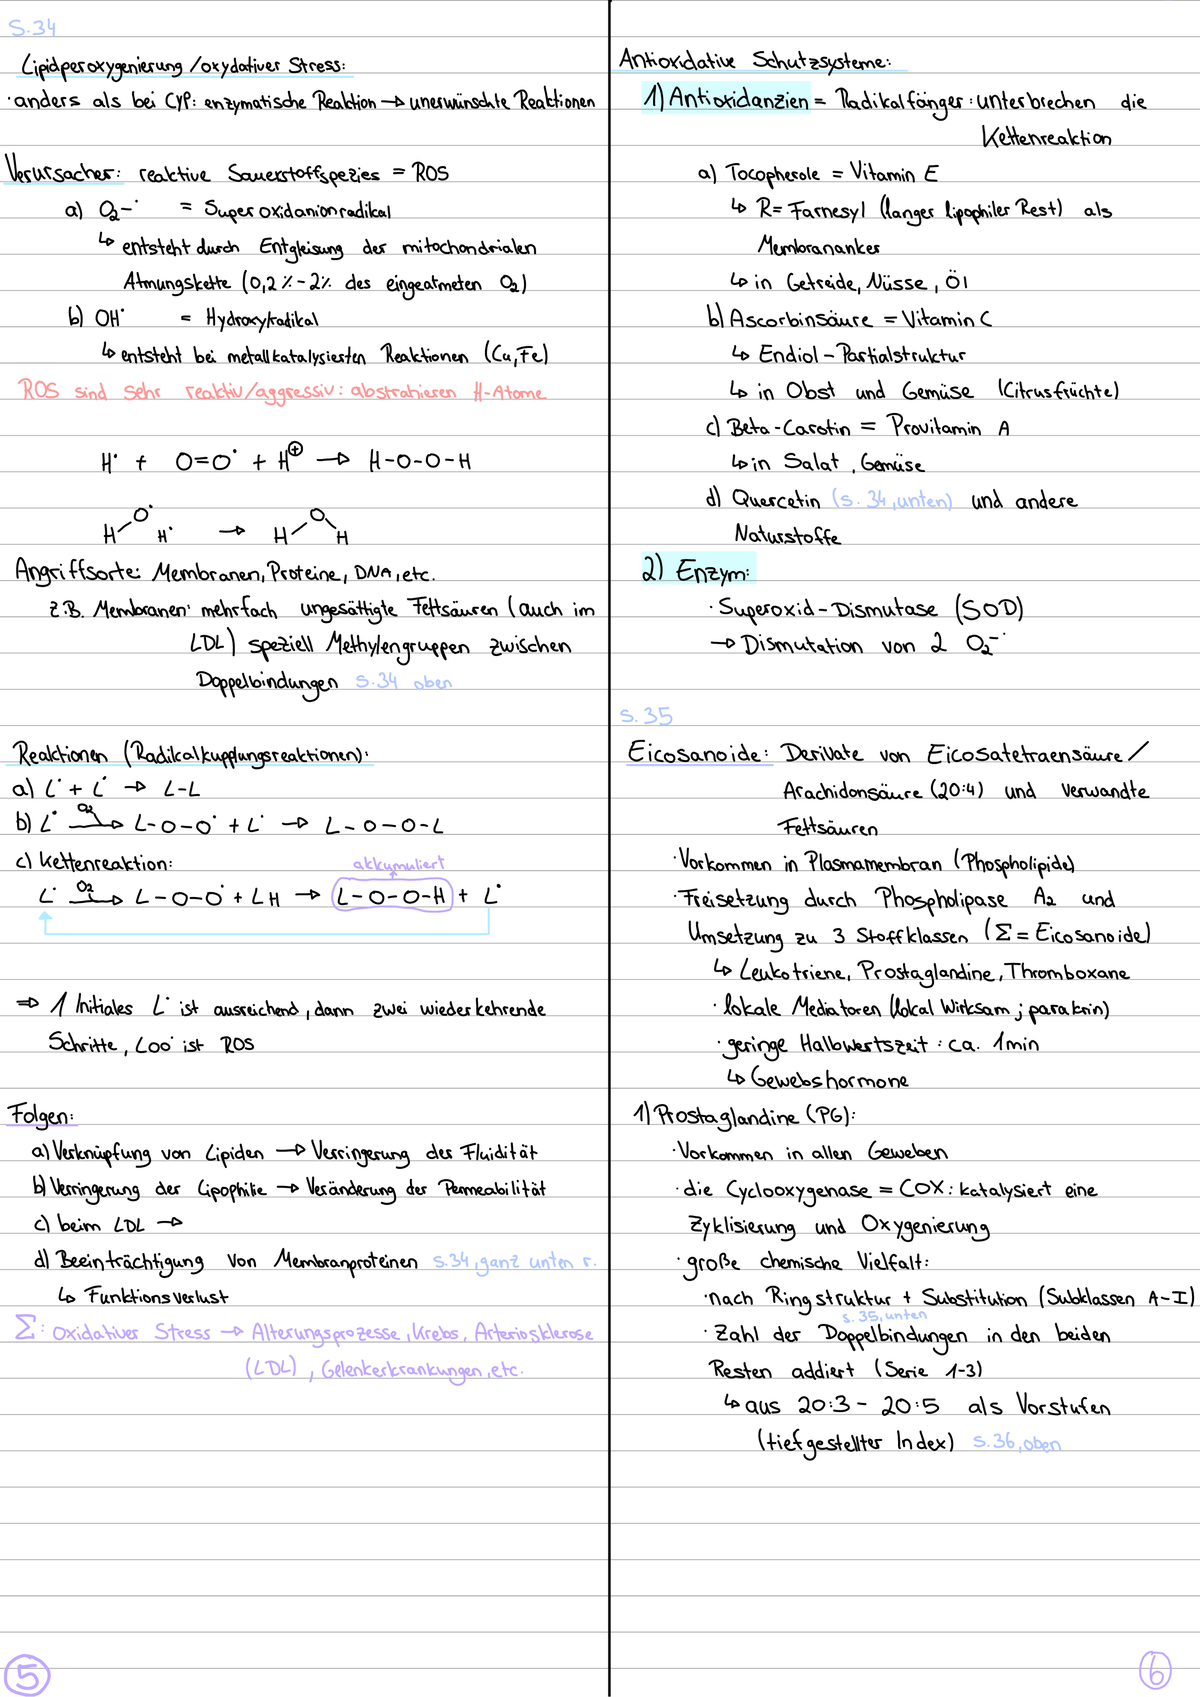 S.34
Lipidperoxygenierung /oxydativer Stress:
·anders als bei CYP: enzymatische Reaktion → unerwünschte Reaktionen
Verursacher: reaktive Sauerstoffspezies = ROS
a) O2-· = Superoxidanionradikal
↳ entsteht durch Entgleisung der mitochondrialen
Atmungskette (0,2%-2% des eingeatmeten O2)
b) OH· = Hydroxylradikal
↳ entsteht bei metallkatalysierten Reaktionen (Cu,Fe)
ROS sind sehr reaktiv/aggressiv: abstrahieren H-Atome
H· + O=O· + H⊕ → H-O-O-H
H-O· H· → H-O-H
Angriffsorte: Membranen, Proteine, DNA, etc.
z.B. Membranen: mehrfach ungesättigte Fettsäuren (auch im
LDL) speziell Methylengruppen zwischen
Doppelbindungen S.34 oben
Reaktionen (Radikalkupplungsreaktionen):
a) L· + L· → L-L
b) L· O2→ L-O-O· + L· → L-O-O-L
c) Kettenreaktion: akkumuliert
L· O2→ L-O-O· + LH → L-O-O-H + L·
⇒ 1 Initiales L· ist ausreichend, dann zwei wiederkehrende
Schritte, LOO· ist ROS
Folgen:
a) Verknüpfung von Lipiden → Verringerung der Fluidität
b) Verringerung der Lipophilie → Veränderung der Permeabilität
c) beim LDL →
d) Beeinträchtigung von Membranproteinen S.34, ganz unten r.
↳ Funktionsverlust
Σ: Oxidativer Stress → Alterungsprozesse, Krebs, Arteriosklerose
(LDL), Gelenkerkrankungen, etc.
5
Antioxidative Schutzsysteme:
1) Antioxidanzien = Radikalfänger: unterbrechen die
Kettenreaktion
a) Tocopherole = Vitamin E
↳ R= Farnesyl (langer lipophiler Rest) als
Membrananker
↳ in Getreide, Nüsse, Öl
b) Ascorbinsäure = Vitamin C
↳ Endiol-Partialstruktur
↳ in Obst und Gemüse (Citrusfrüchte)
c) Beta-Carotin = Provitamin A
↳ in Salat, Gemüse
d) Quercetin (S. 34, unten) und andere
Naturstoffe
2) Enzym:
· Superoxid-Dismutase (SOD)
→ Dismutation von 2 O2-·
S. 35
Eicosanoide: Derivate von Eicosatetraensäure/
Arachidonsäure (20:4) und verwandte
Fettsäuren
·Vorkommen in Plasmamembran (Phospholipide)
·Freisetzung durch Phospholipase A2 und
Umsetzung zu 3 Stoffklassen (Σ = Eicosanoide)
↳ Leukotriene, Prostaglandine, Thromboxane
· lokale Mediatoren (lokal wirksam; parakrin)
· geringe Halbwertszeit: ca. 1min
↳ Gewebshormone
1) Prostaglandine (PG):
·Vorkommen in allen Geweben
·die Cyclooxygenase = COX: katalysiert eine
Zyklisierung und Oxygenierung
·große chemische Vielfalt:
·nach Ringstruktur + Substitution (Subklassen A-I)
S. 35, unten
· Zahl der Doppelbindungen in den beiden
Resten addiert (Serie 1-3)
↳ aus 20:3 - 20:5 als Vorstufen
(tiefgestellter Index) S.36, oben
6